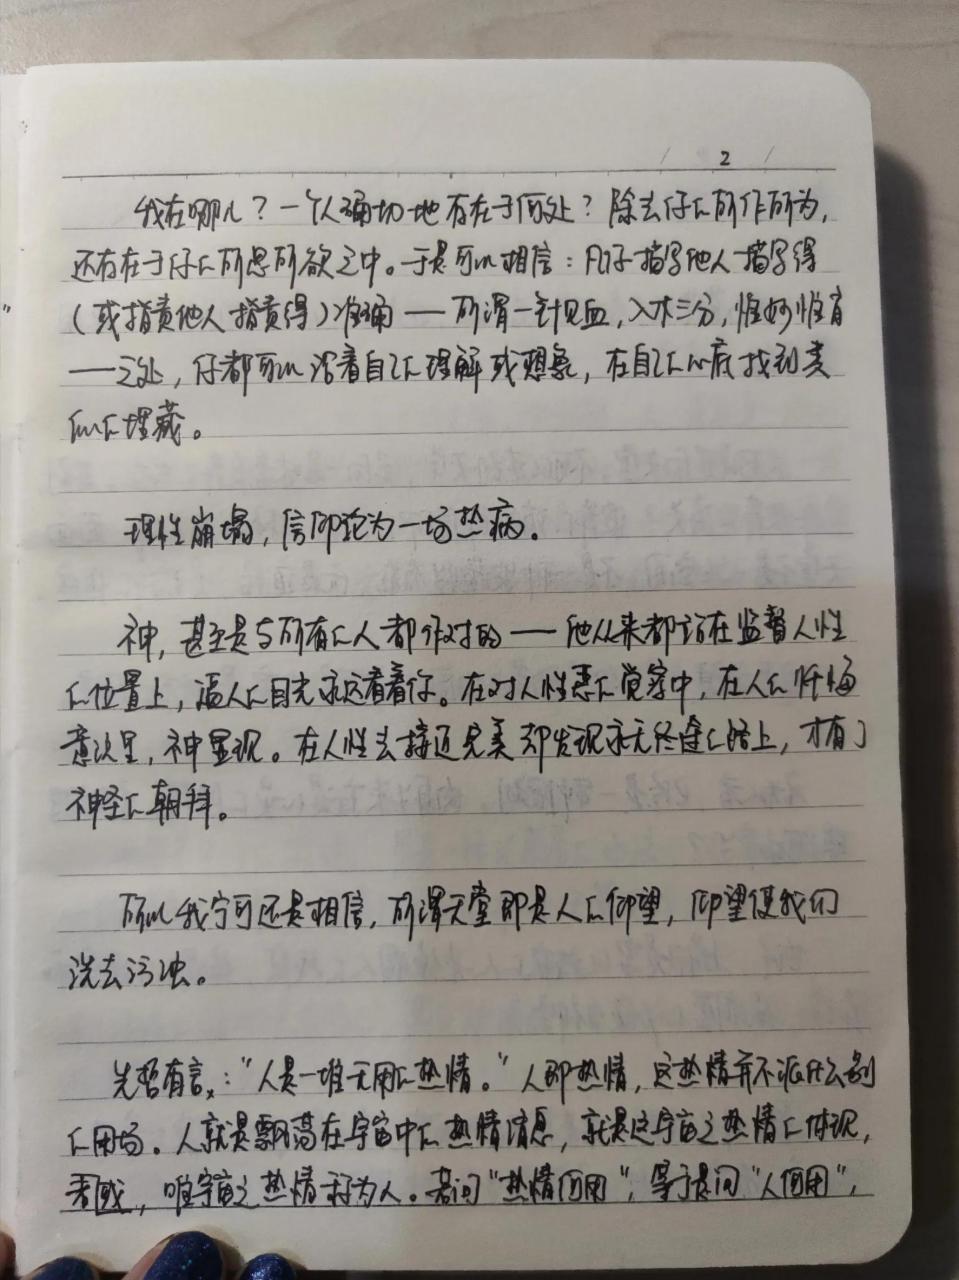 2
我在哪儿？一个人确切地存在于何处？除去你的所作所为，
还存在于你的所思所欲之中。于是可以相信：凡你描写他人描写得
（或指责他人指责得）准确——所谓一针见血，入木三分，惟妙惟肖
——之处，你都可以沿着自己的理解或想象，在自己的心底找到类
似的埋藏。
理性崩塌，信仰沦为一场热病。
神，甚至是与所有的人都作对的——他从来都站在监督人性
的位置上，逼人的目光永远看着你。在对人性恶的觉察中，在人的忏悔
意识里，神显现。在人性去接近完美却发现永无终途的路上，才有了
神圣的朝拜。
所以我宁可还是相信，所谓天堂即是人的仰望，仰望使我们
洗去污浊。
先哲有言：“人是一堆无用的热情。”人即热情，这热情并不派什么别
的用场。人就是飘荡在宇宙中的热情消息，就是这宇宙之热情的体现，
或，唯宇宙之热情称为人。若问“热情何用”，等于是问“人何用”，